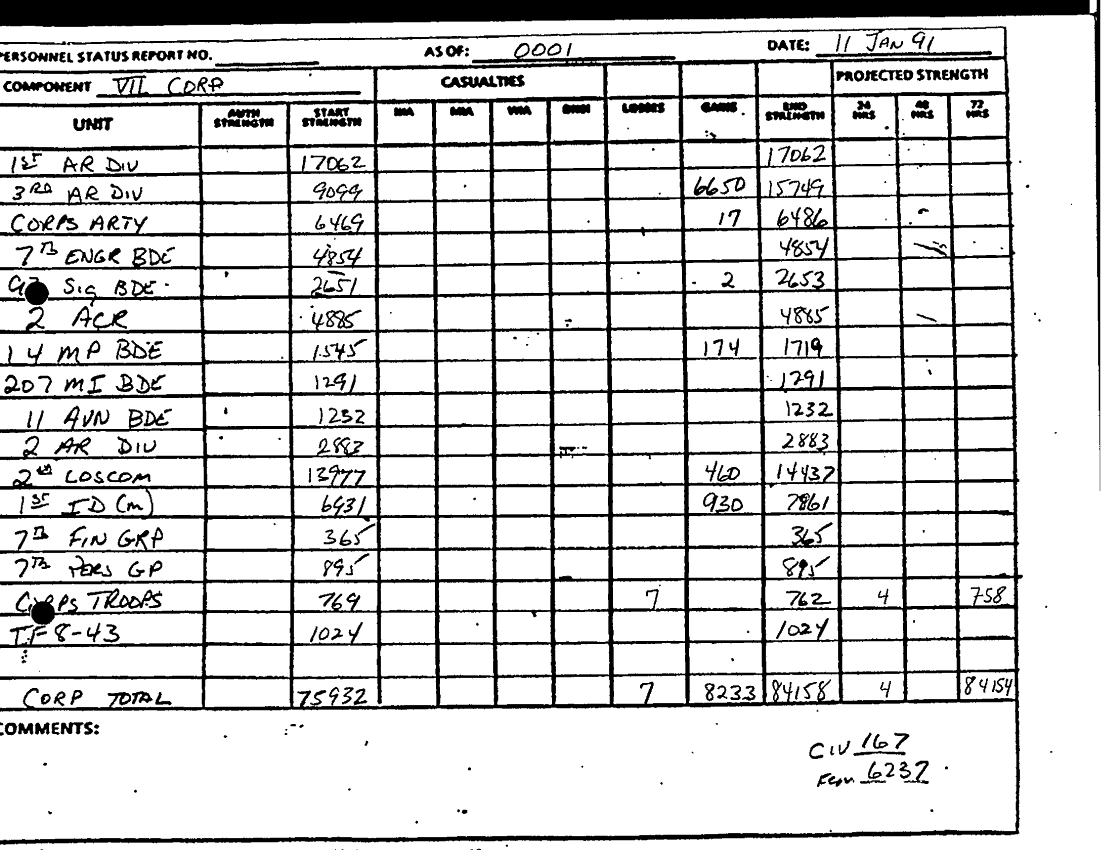 PERSONNEL STATUS REPORT NO. AS OF: 0001 DATE: 11 JAN 91
COMPONENT VII CORP CASUALTIES PROJECTED STRENGTH
UNIT AUTH STRENGTH START STRENGTH KIA MIA WIA LOSSES GAINS END STRENGTH 24 HRS 48 HRS 72 HRS
1ST AR DIV 17062 17062
3RD AR DIV 9099 6650 15749
CORPS ARTY 6469 17 6486
7TH ENGR BDE 4854 4854
Sig BDE 2651 2 2653
2 ACR 4885 4885
14 MP BDE 1545 174 1719
207 MI BDE 1291 1291
11 AVN BDE 1232 1232
2 AR DIV 2883 2883
2nd COSCOM 13977 460 14437
1ST ID (m) 6931 930 7861
7TH FIN GRP 365 365
7TH PERS GP 895 895
CORPS TROOPS 769 7 762 4 758
TF 8-43 1024 1024
CORP TOTAL 75932 7 8233 84158 4 84154
COMMENTS:
CIV 167
Fem 6237